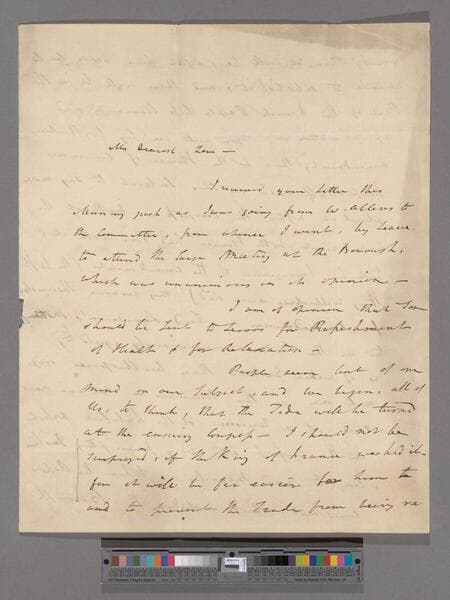 My Dearest
I received your letter this
Morning just as I was going from W. Allens to
the Committee, from whence I went, by leave,
to attend the large Meeting at the Borough,
which was unanimous in its opinion —
I am of opinion that Tom
should be sent to for Refreshment
of Health & for Relaxation —
People seem but of one
mind on our Subject, and we begin, all of
Us, to think, that the Tide will be turned
at the ensuing Congress — I should not be
surprised, if the King of France wished it —
for it will be far easier for him to
and to prevent the Trade from being re